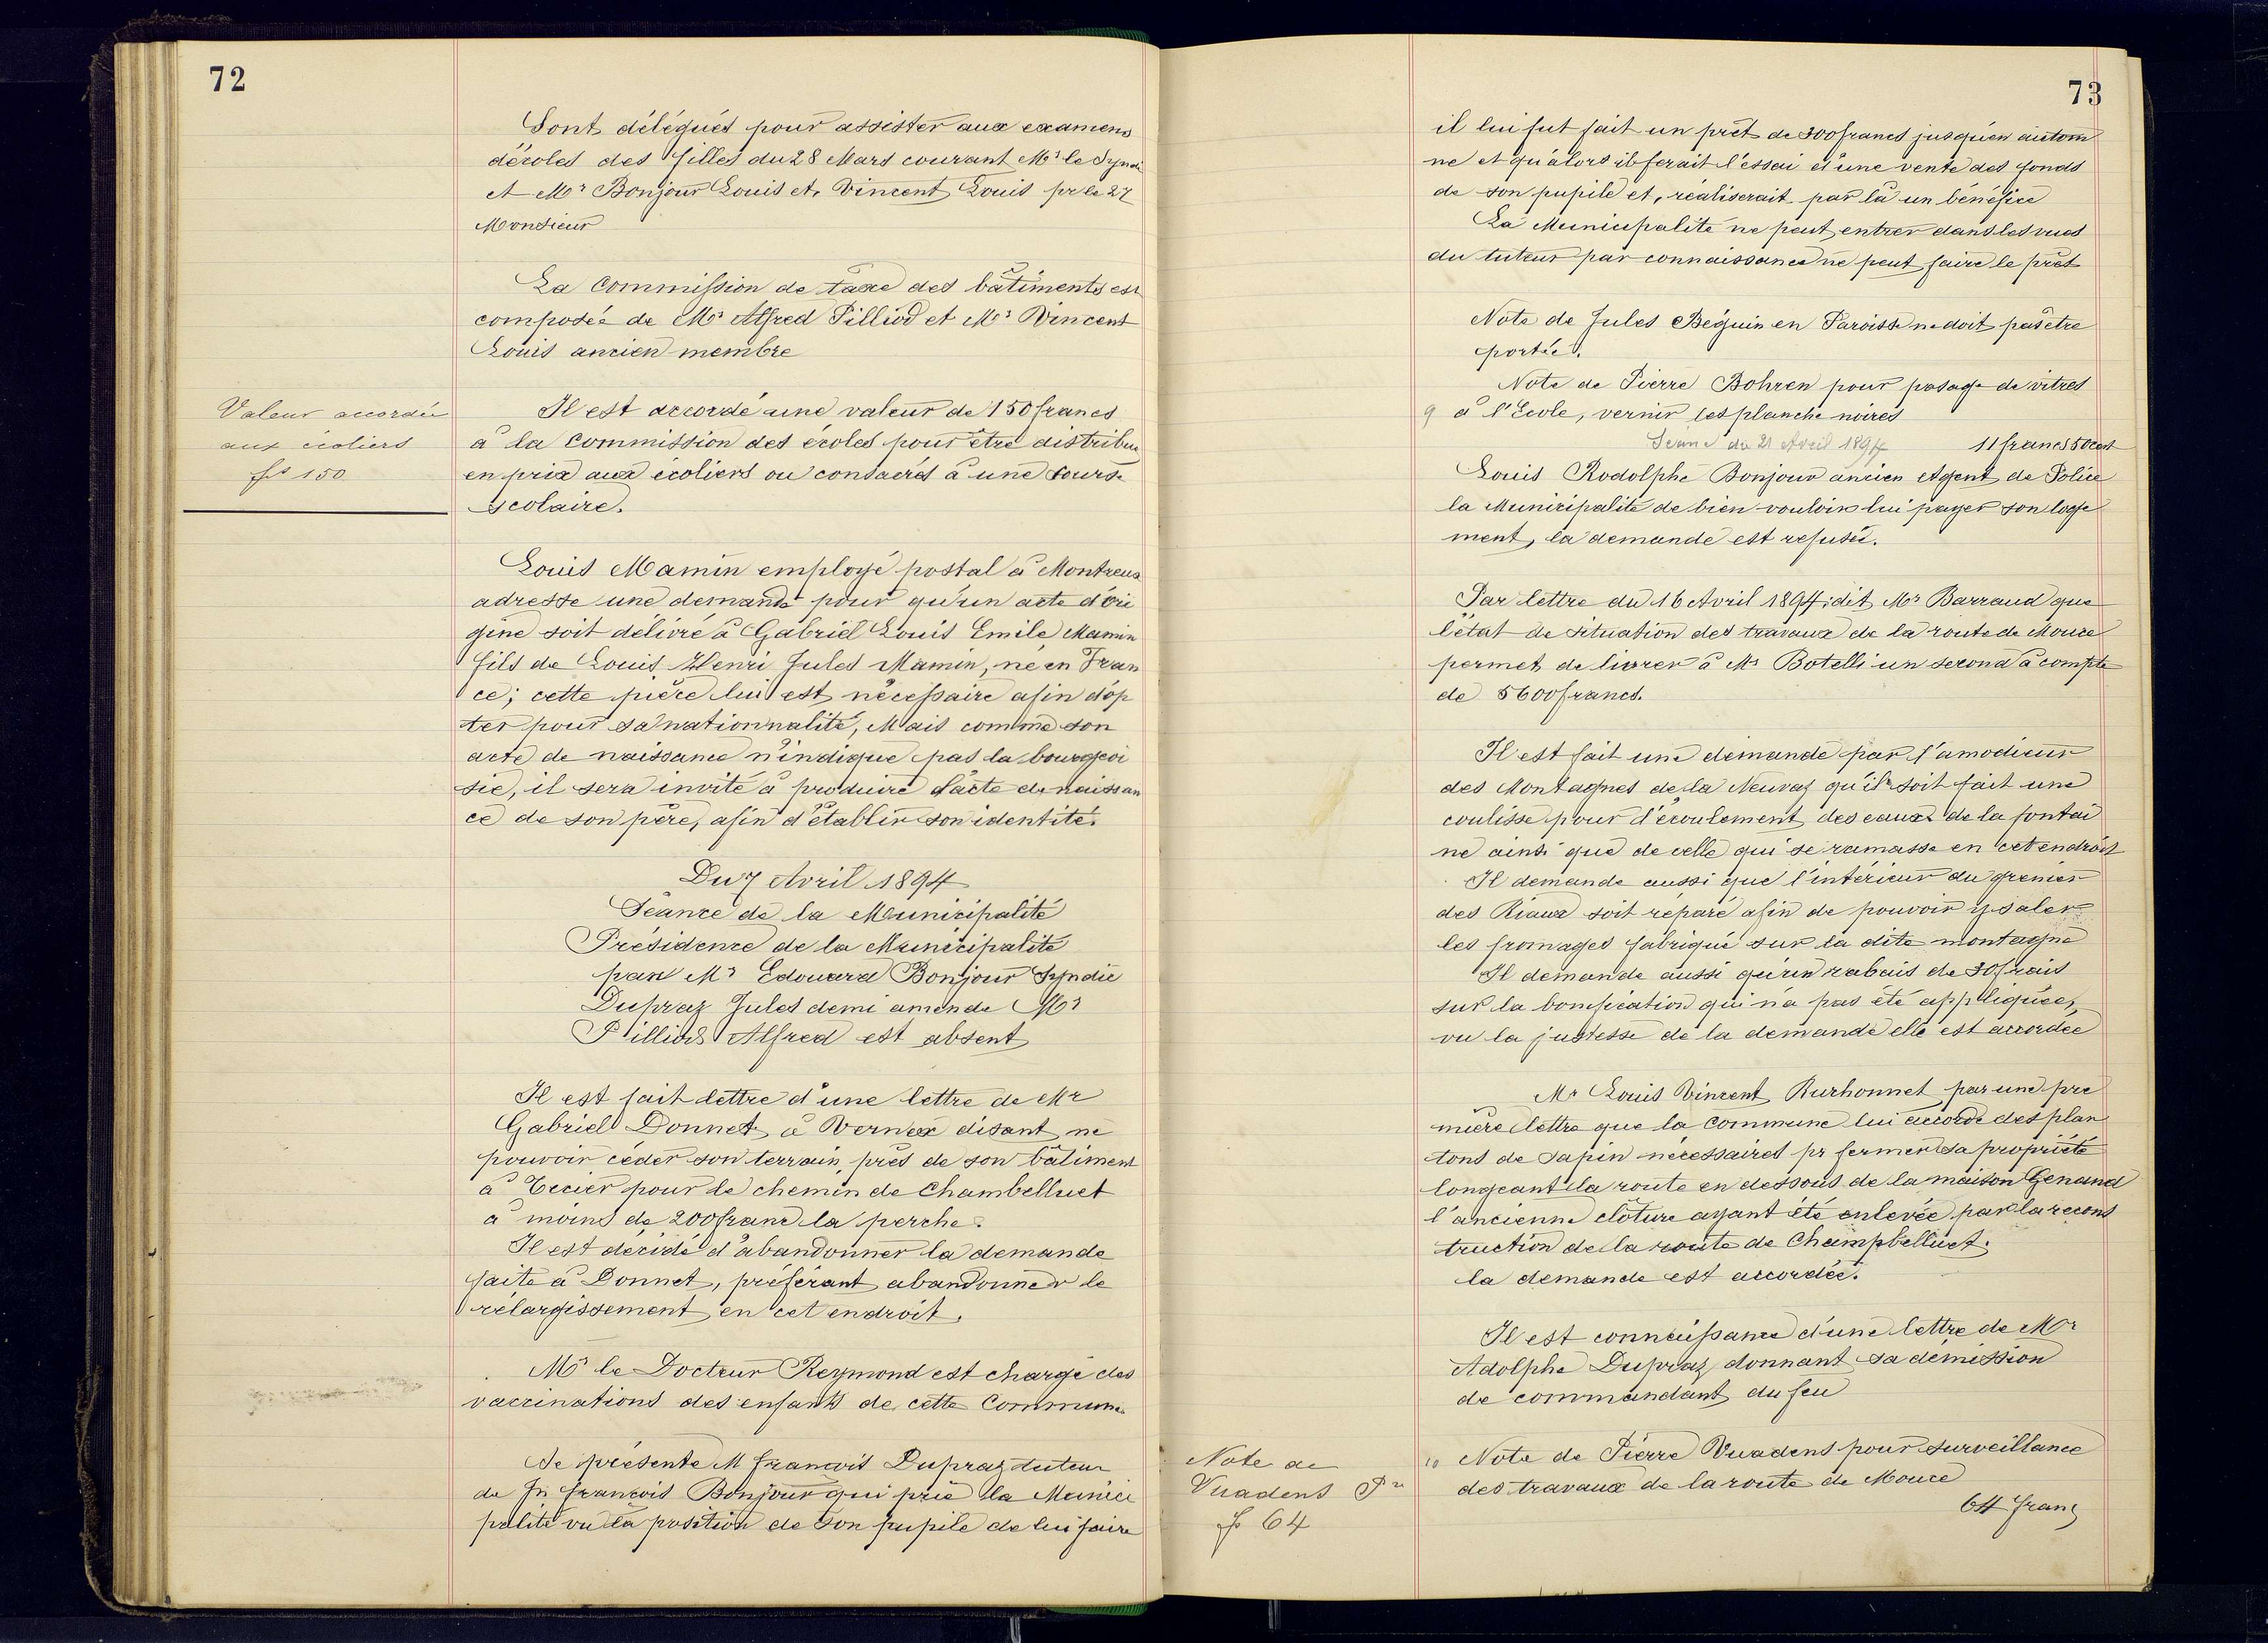 72
Sont délégués pour assister aux examens
d'écoles des filles du 28 Mars courant Mr le Syndic
et Mr Bonjour Louis et Vincent Louis pr le 27
Monsieur
La Commission de taxe des bâtiments est
composée de Mr Alfred Pilliod et Mr Vincent
Louis ancien membre
Valeur accordée
aux écoliers
frs 150
Il est accordé une valeur de 150 francs
à la Commission des écoles pour être distribu
en prix aux écoliers ou consacrés à une course
scolaire.
Louis Mamin employé postal à Montreux
adresse une demande pour qu'un acte d'ori
gine soit délivré à Gabriel Louis Emile Mamin
fils de Louis Henri Jules Mamin, né en Fran
ce; cette pièce lui est nécessaire afin d'op
ter pour sa nationnalité, Mais comme son
acte de naissance n'indique pas la bourgeoi
sie, il sera invité à produire l'acte de naissan
ce de son père, afin d'établir son identité.
Du 7 Avril 1894
Séance de la Municipalité
Présidence de la Municipalité
par Mr Edouard Bonjour Syndic
Dupraz Jules demi amende Mr
Pilliod Alfred est absent
Il est fait lettre d'une lettre de Mr
Gabriel Donnet à Vernex disant ne
pouvoir céder son terrain près de son bâtiment
à Tercier pour le chemin de Chambelluet
à moins de 200 franc la perche.
Il est décidé d'abandonner la demande
faite à Donnet, préférant abandonner le
rélargissement en cet endroit.
Mr le Docteur Reymond est chargé des
vaccinations des enfants de cette Commune
Se présente M François Dupraz tuteur
de François Bonjour qui prie la Munici
palité vu la position de son pupile de lui faire
73
il lui fut fait un prêt de 300 francs jusqu'en autom
ne et qu'alors il ferait l'essai d'une vente des fonds
de son pupile et, réaliserait par là un bénéfice
La Municipalité ne peut entrer dans les vues
du tuteur par connaissance ne peut faire le prêt
Note de Jules Béguin en Paroisse ne doit pas être
portée.
Note de Pierre Bohren pour posage de vitres
9 à l'Ecole, vernir les planche noires
Séance du 21 Avril 1894 11 francs 50 cent
Louis Rodolphe Bonjour ancien Agent de Police
la Municipalité de bien vouloir lui payer son loge
ment, la demande est refusée.
Par lettre du 16 Avril 1894; dit Mr Barraud que
l'état de situation des travaux de la route de Mource
permet de livrer à Mr Botelli un second à compte
de 5600 francs.
Il est fait une demande par l'amodieur
des Montagnes de la Neuvaz qu'il soit fait une
coulisse pour l'écoulement des eaux de la fontai
ne ainsi que de celle qui se ramasse en cet endroit
Il demande aussi que l'intérieur du grenier
des Riaux soit réparé afin de pouvoir y saler
les fromages fabriqué sur la dite montagne
Il demande aussi qu'un rabais de 30 frais
sur la bonification qui n'a pas été appliquée,
vu la justesse de la demande elle est accordée
Mr Louis Vincent Rurhonnet par une pre
mière lettre que la Commune lui accorde des plan
tons de sapin nécessaires pr fermer sa propriété
longeant la route en dessous de la maison Genand
l'ancienne clôture ayant été enlevée par la recons
truction de la route de Champbelluet.
la demande est accordée.
Il est connaissance d'une lettre de Mr
Adolphe Dupraz donnant sa démission
de commandant du feu
Note de
Vuadens Pre
fr 64
10 Note de Pierre Vuadens pour surveillance
des travaux de la route de Mource
64 franc